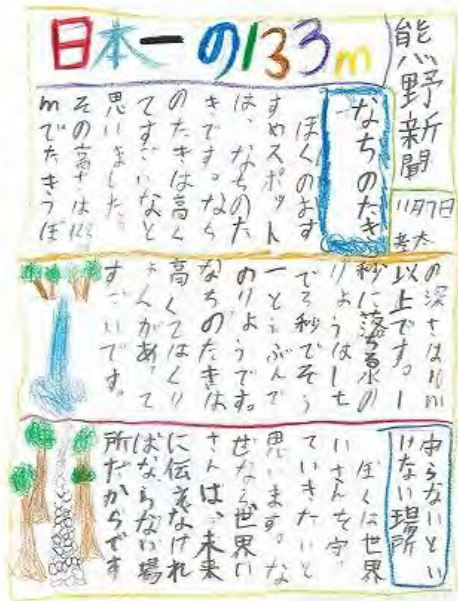 熊野新聞
11月7日
日本一の133m
なちのたき
ぼくのおす
すめスポット
は、なちのた
きです。なち
のたきは高く
てすごいなと
思いました。
その高さは133
mでたきつぼ
の深さは10m
以上です。1
秒に落ちる水の
りょうは1t
秒でそう
ぶんで
のりょうです。
なちのたきは
高くてはくり
ょくがあって
すごいです。
守らないとい
けない場所
ぼくは世界
いさんを守っ
ていきたいと
思います。な
ぜなら世界い
さんは、未来
に伝えなけれ
ばならない場
所だからです